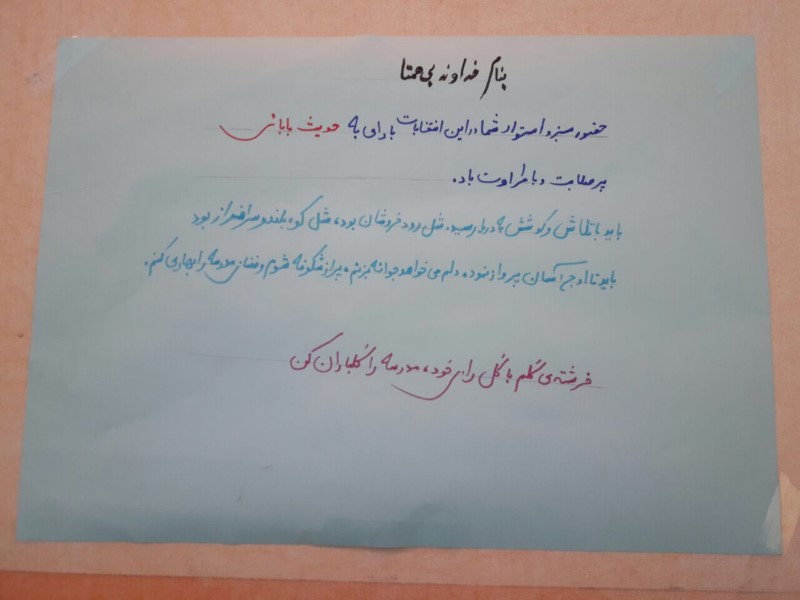 بنام خداوند بی همتا
حضور سبز و استوار شما در این انتخابات با رای به حدیث بابائی
پر صلابت و با طراوت باد.
باید با تلاش و کوشش به دریا رسید. مثل رود خروشان بود، مثل کوه بلند و سرافراز بود
باید تا اوج آسمان پرواز نمود. دلم می خواهد جوانه بزنم، پر از شکوفه شوم و فضای مدرسه را بهاری کنم.
فرشته ی گلم با گل رای خود، مدرسه را گلباران کن